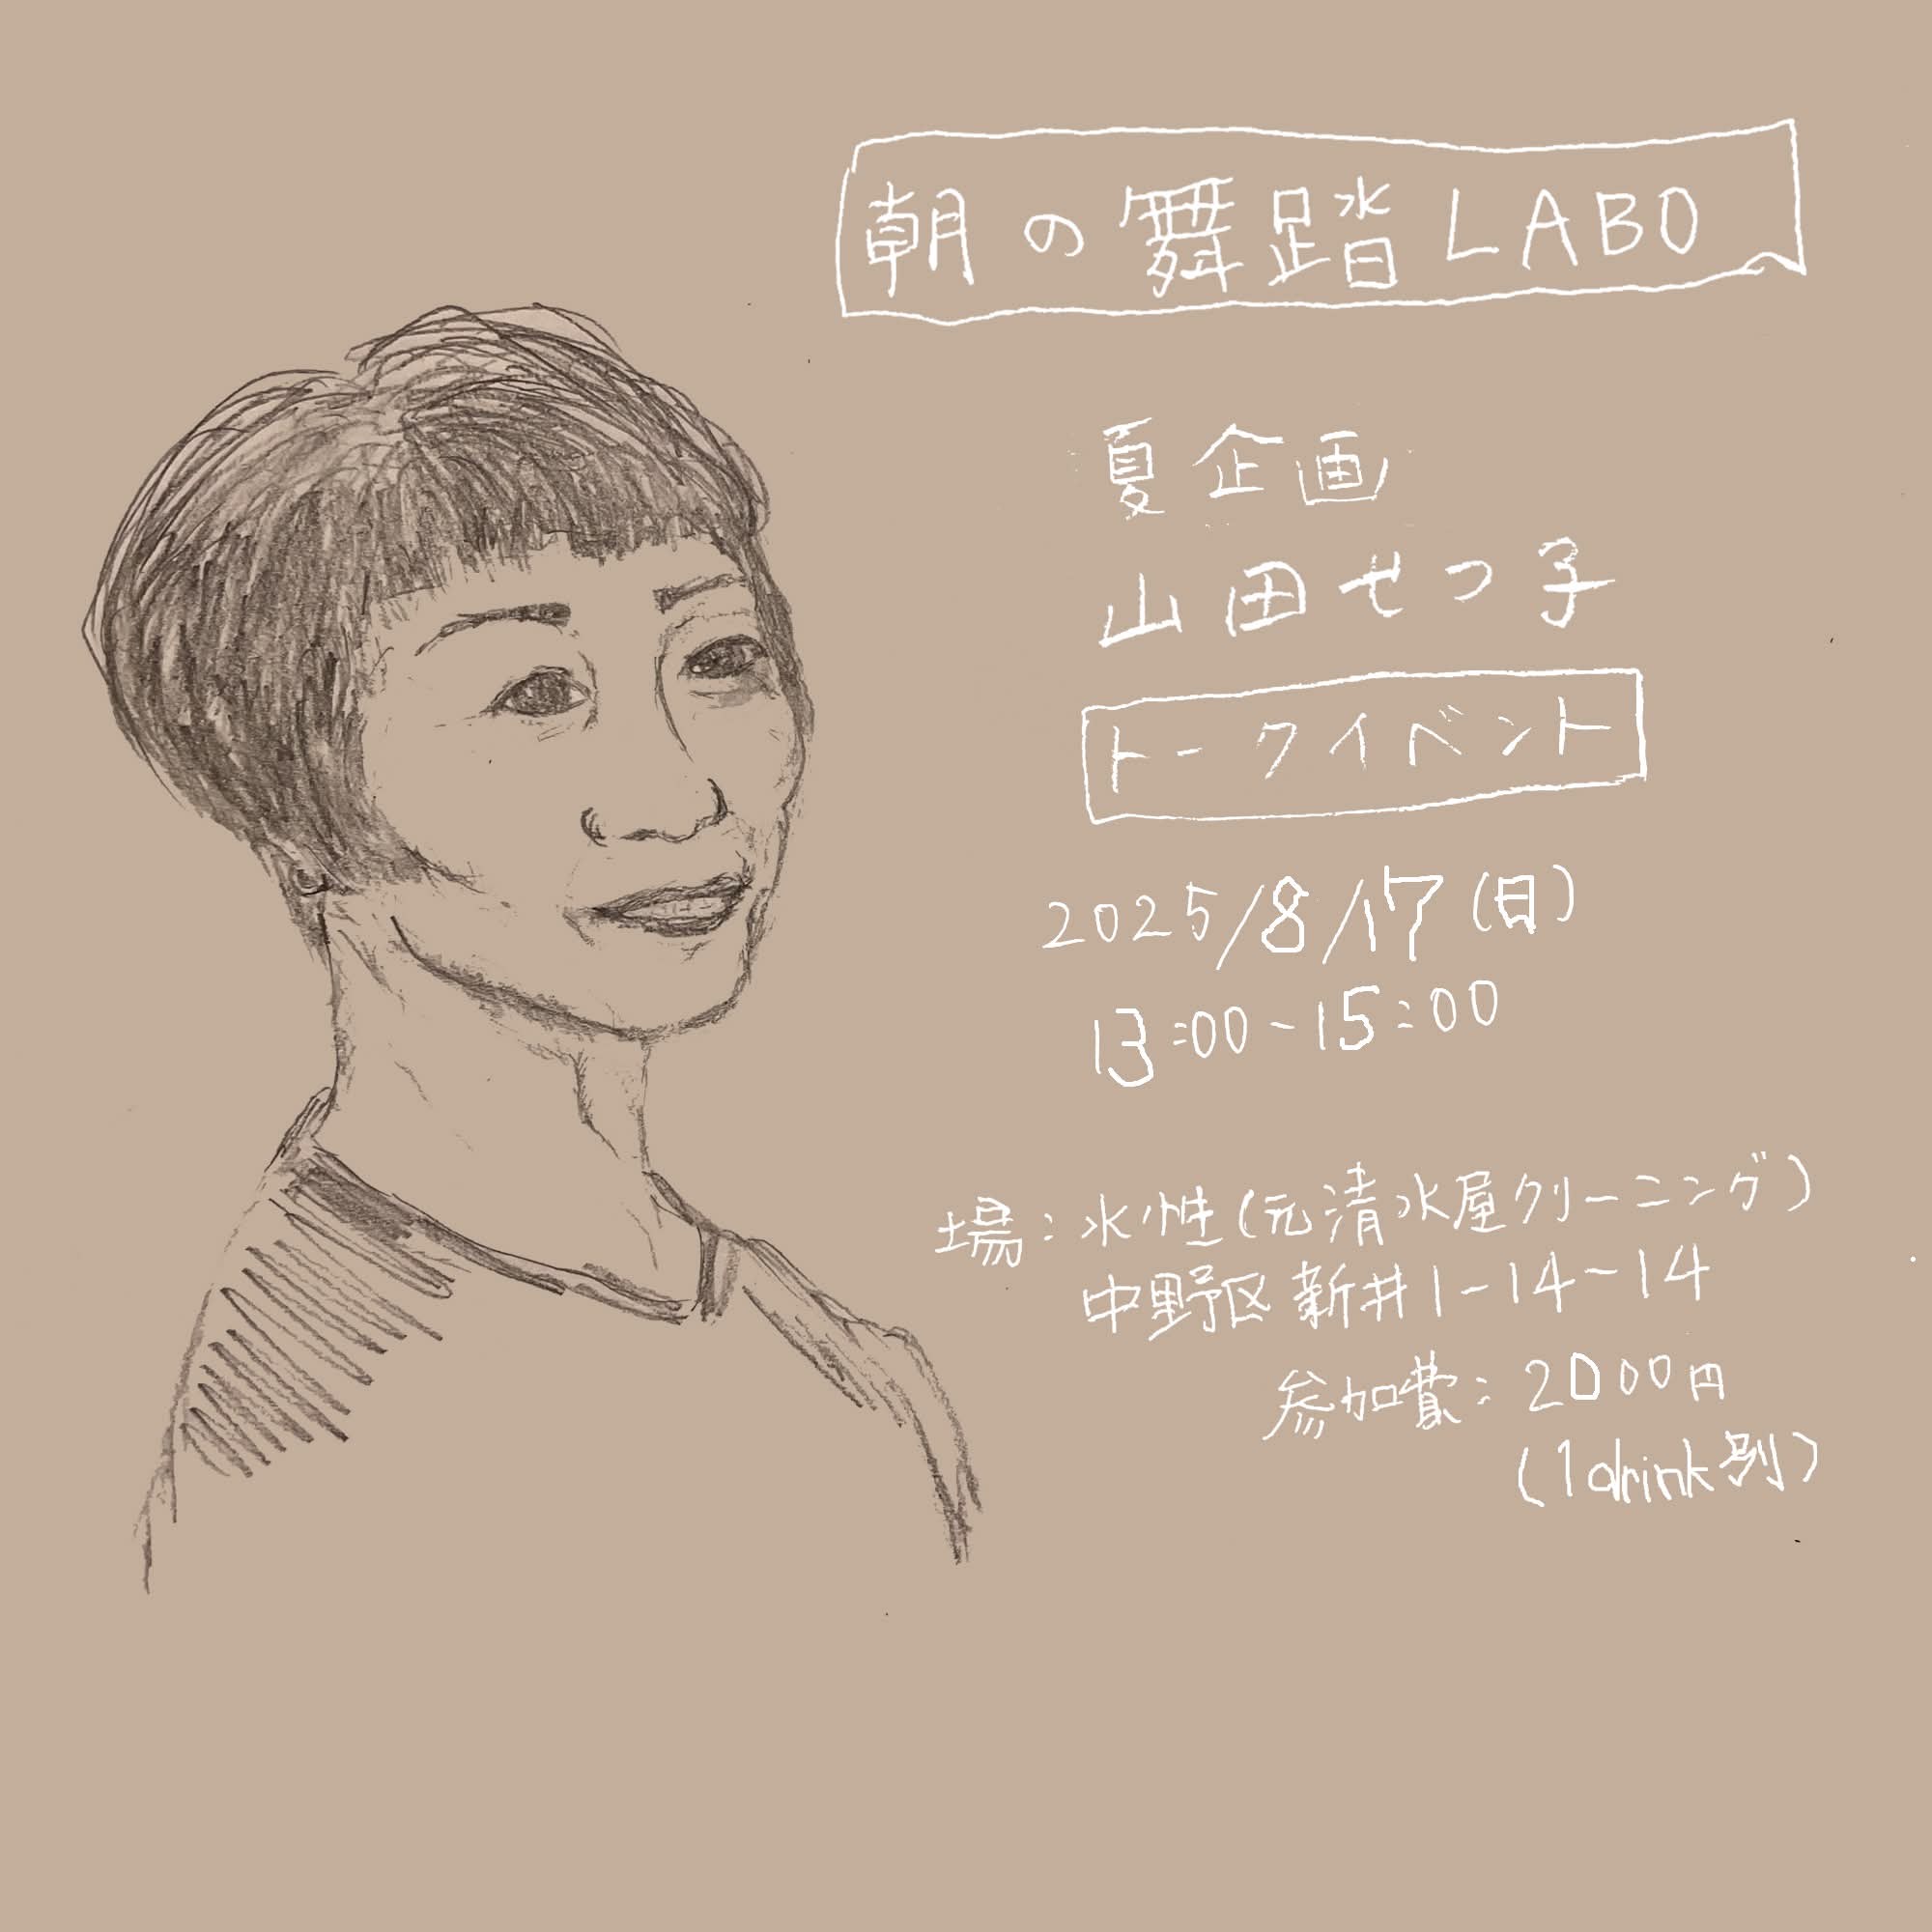 朝の舞踏LABO
夏企画
山田せつ子
トークイベント
2025/8/17(日)
13:00-15:00
場:水性(元清水屋クリーニング)
中野区新井1-14-14
参加費:2000円
(1drink別)